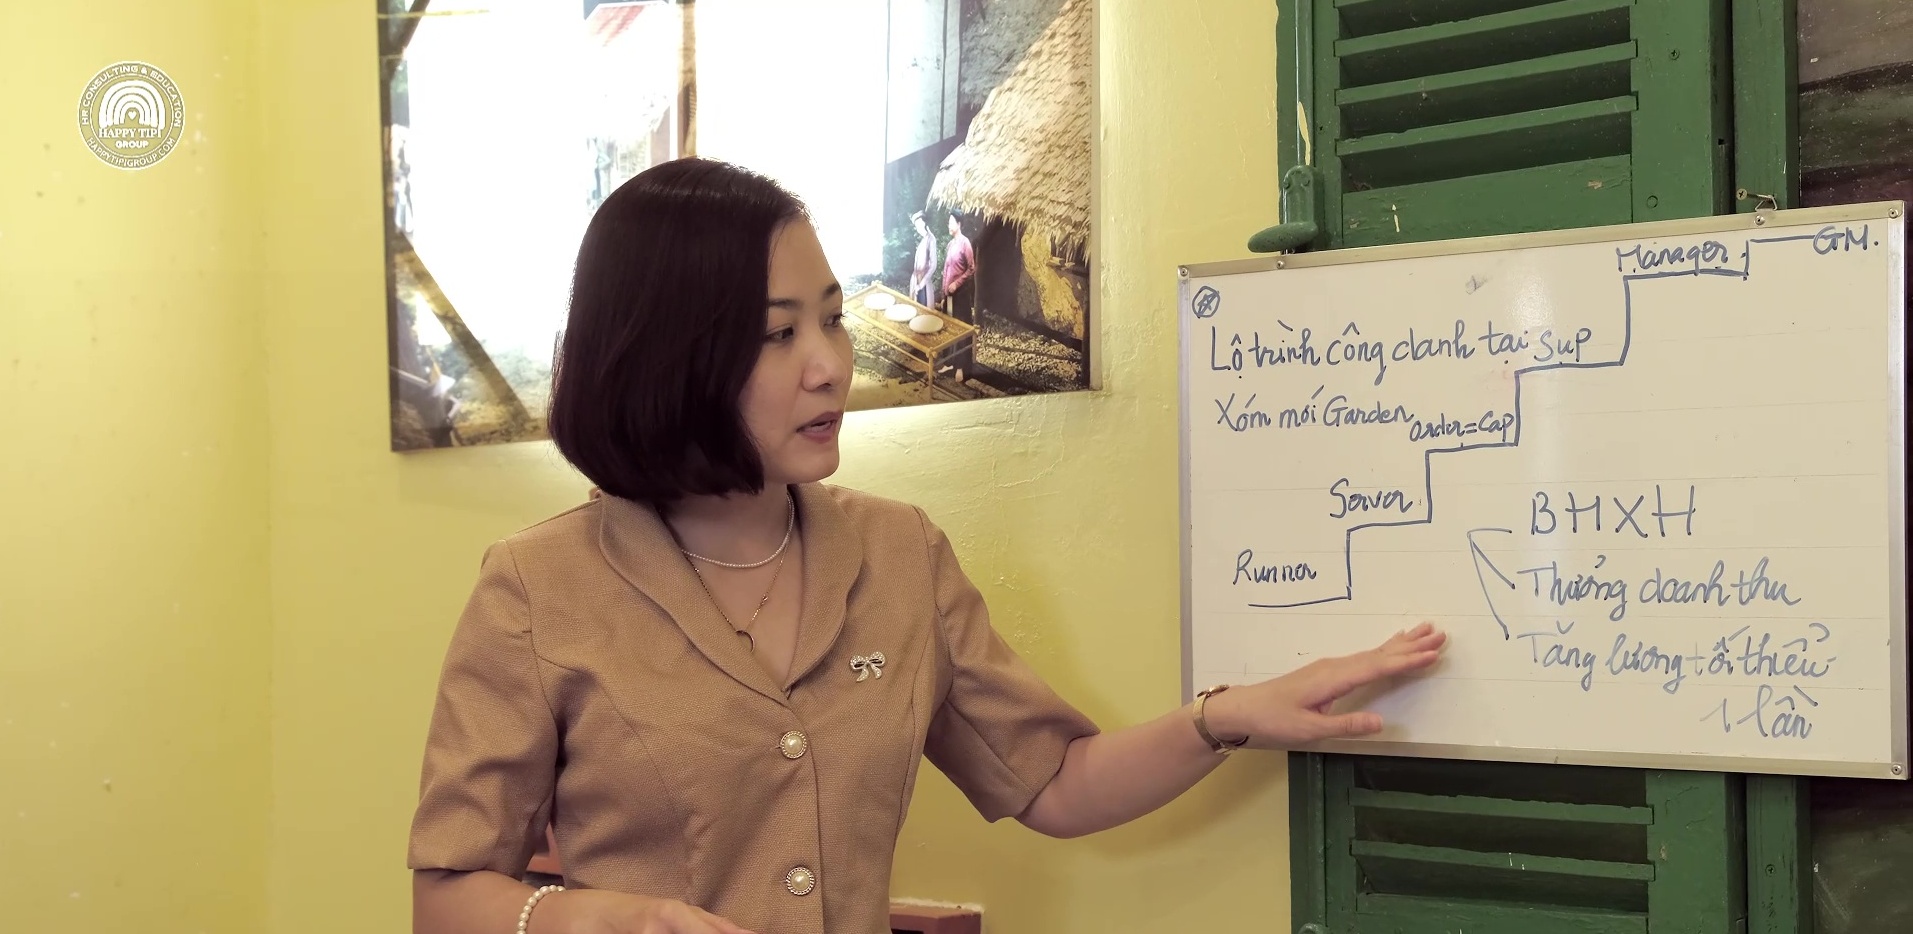 HR CONSULTING & EDUCATION
HAPPY TIPI
GROUP
HAPPYTIPIGROUP.COM
Manager
GM.
Lộ trình công danh tại
Sup
Xóm mới Garden
Order=Cap
Server
Runner
BHXH
Thưởng doanh thu
Tăng lương tối thiểu
1 lần